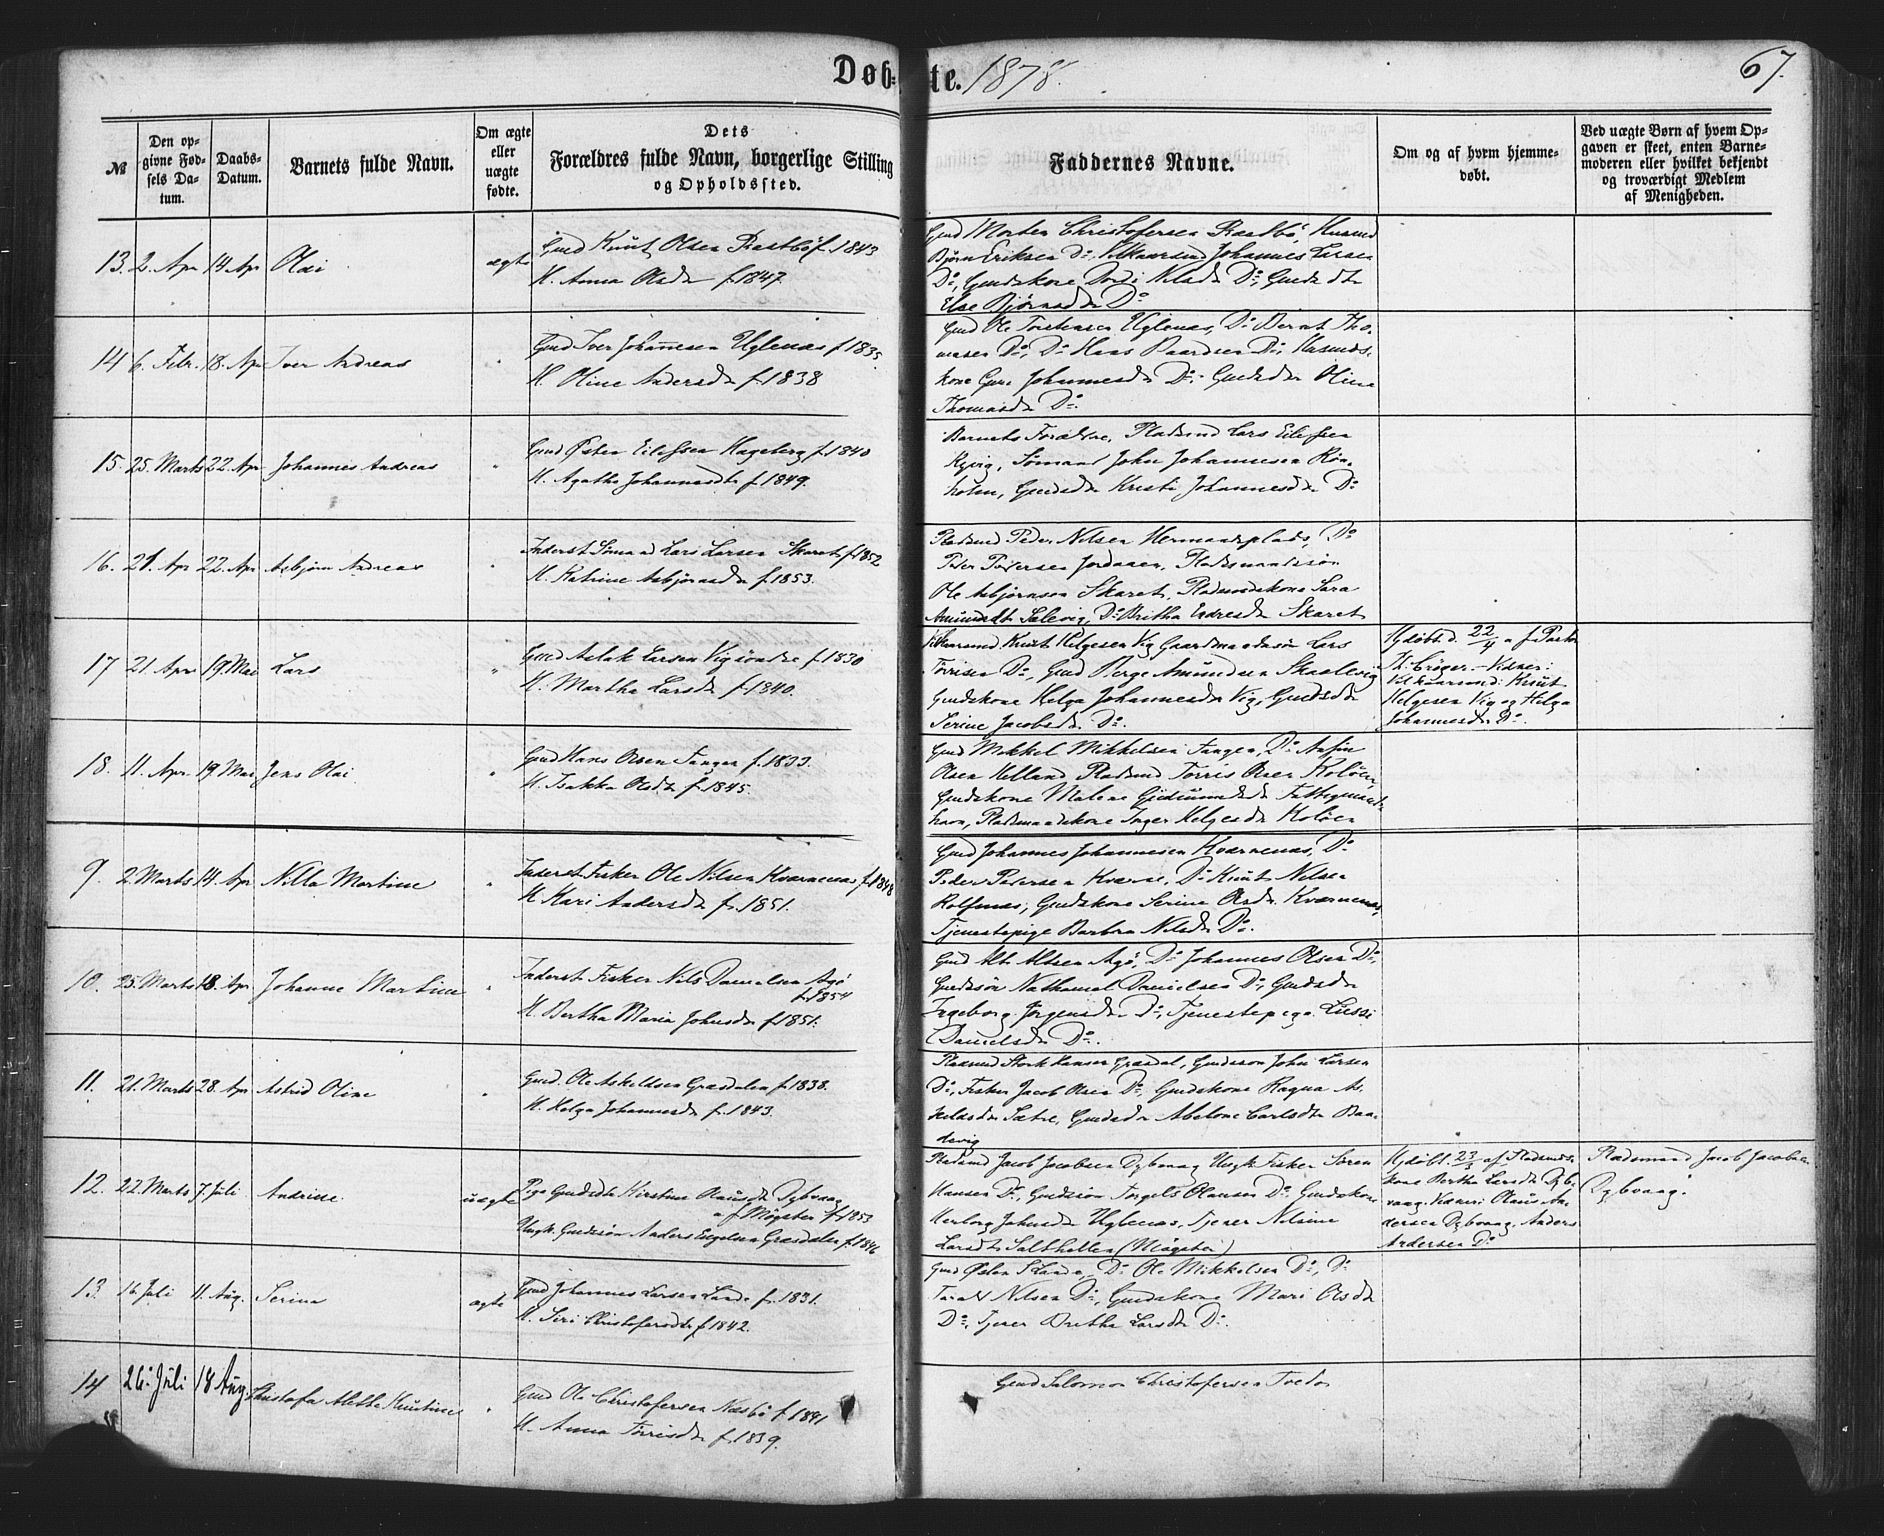 Døb-
te. 1878.
67.
№
Den op-
givne Fød-
sels Da-
tum.
Daabs-
Datum.
Barnets fulde Navn.
Om ægte
eller
uægte
fødte.
Dets
Forældres fulde Navn, borgerlige Stilling
og Opholdssted.
Faddernes Navne.
Om og af hvem hjemme-
døbt.
Ved uægte Børn af hvem Op-
gaven er skeet, enten Barne-
moderen eller hvilket bekjendt
og troværdigt Medlem
af Menigheden.
13. 2. Apr 14 Apr Olai ægte
Gmd Knut Olsen Rastbø f. 1843
H. Anna Olsdr f. 1847.
Gmd Morten Christofersen Rastbø, Husmd
Bjørn Eriksen Do. Johannes Larsen
Do, Gmdskone Nilsdr Do, Gmdsdtr
Else Bjørnsdtr Do
14 6. Febr. 18. Apr Iver Andreas "
Gmd Iver Johannesen Uglenæs f 1835
H. Oline Andersdr f. 1838
Gmd Ole Torstensen Uglenæs, Do Bernt Tho-
masen Do, Do Hans Do, Husmds-
kone Johannesdr Do, Gmdsdtr Oline
Thomasdr Do.
15. 25. Marts 22. Apr Johannes Andreas "
Gmd Østen Eilefsen Hageberg f. 1840
H. Agatha Johannesdtr f. 1849.
Barnets Forældre, Pladsmd Lars Eilefsen
Sømand John Johannesen Røn-
holm, Gmdsdtr Kristi Johannesdtr Do
16. 21. Apr 22. Apr Asbjørn Andreas "
Inderst Sømand Lars Larsen Skaret f 1852
H. Katrine Asbjørnsdr f. 1853.
Pladsmd Peder Nilsen Hermansplads, Do
Peder Pedersen Jordaaen, Pladsmandssøn
Ole Asbjørnsen Skaret, Pladsmdskone Sara
Amundsdtr Do Britha Endresdtr Skaret
17 21. Apr 19. Mai Lars "
Gmd Aslak Larsen Vig f. 1830
H. Martha Larsdr f. 1840.
Knut Helgesen Vig Gaardmandssøn Lars
Torrisen Do, Gmd Berge Amundsen Skaalevig
Gmdskone Helga Johannesdtr Vig, Gmdsdtr
Serine Jacobsdtr Do.
Hjdøbt d. 22/4 af Pastor
Th. Vidner:
Knut
Helgesen Vig og Helga
Johannesdtr Do.
18. 11. Apr. 19. Mai Jens Olai "
Gmd Hans Olsen Tangen f. 1833.
H. Isakka Olsdtr f. 1845.
Gmd Mikkel Mikkelsen Tangen, Do
Olsen Helland, Pladsmd Torris Olsen Koløen
Gmdskone Malene
havn, Pladsmandskone Inger Helgesdtr Koløen
9. 2. Marts 14. Apr Nilla Martine "
Inderst Fisker Ole Nilsen Kvernenæs f. 1848
H. Kari Andersdtr f. 1851.
Gmd Johannes Johannesen Kvernenæs, Do
Peder Pedersen Kværne, Do Knut Nilsen
Rolfsnæs, Gmdskone Serine Olsdtr Kvernenæs,
Tjenestepige Barbra Nilsdtr Do.
10. 25. Marts 18. Apr. Johanne Martine "
Inderst Fisker Nils Danielsen Agø
f. 1854
H. Bertha Maria Johnsdtr f. 1851.
Gmd Agø, Do Johannes Olsen Do,
Gmdssøn Nathanael Danielsen Do, Gmdsdtr
Ingeborg Jørgensdtr Do, Tjenestepige
Danielsdtr Do.
11. 21. Marts 28. Apr Astrid Oline "
Gmd. Ole Askeldsen Græsdalen f. 1838.
H. Helga Johannesdtr f. 1843.
Pladsmd Hansen Græsdal, Gmdssøn John Larsen
Do, Fisker Jacob Olsen Do, Gmdskone Ragna As-
keldsdtr Sætre, Gmdsdtr Abelone Carlsdtr Baa-
devig
12. 22. Marts 7. Juli Andrine. uægte
Pige Gmdsdtr Kirstine Olausdtr Dybvaag
af Møgster f. 1853
Ungk. Gmdssøn Anders Engelsen Græsdalen f. 1846
Pladsmd Jacob Jacobsen Dybvaag Ungk. Fisker Søren
Hansen Do, Gmdssøn Torgels Olausen Do, Gmdskone
Herborg Johnsdtr Uglenæs, Tjener Nilsine
Larsdtr Salthellen (Møgster)
Hjdøbt 23/3 af Pladsmds-
kone Bertha Larsdtr Dyb-
vaag. Vidner: Olaus An-
dersen Dybvaag, Anders
Andersen Do
Pladsmand Jacob Jacobsen
Dybvaag.
13. 16. Juli 11. Aug. Serina ægte
Gmd Johannes Larsen Lande f. 1831.
H. Siri Christofersdtr f 1842.
Gmd Østen S Lande, Do Ole Mikkelsen Do, Do
Nilsen Do, Gmdskone Mari Olsdtr
Do, Tjener Bretha Larsdtr Do.
14 26. Juli 18 Aug. Christofa Alette Knutine "
Gmd Ole Christofersen Næsbø f 1841
H. Anna Torrisdtr f. 1839.
Gmd Salomon Christofersen Tvedo